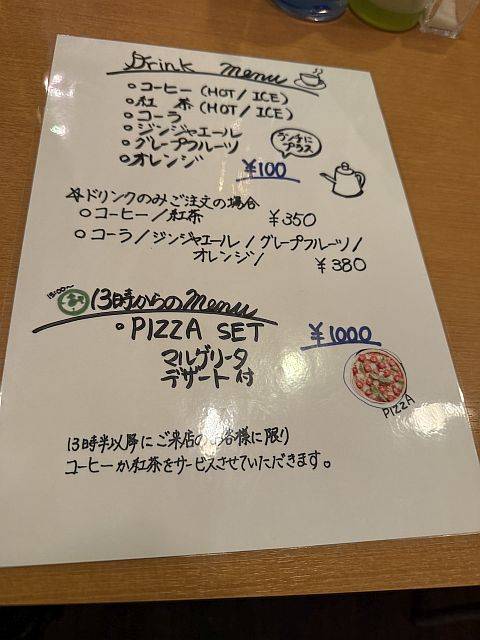 Drink menu
○コーヒー(HOT/ICE)
○紅 茶(HOT/ICE)
○コーラ
○ジンジャエール
○グレープフルーツ
○オレンジ
ランチに
プラス
¥100
☆ドリンクのみご注文の場合
○コーヒー/紅茶 ¥350
○コーラ/ジンジャエール/グレープフルーツ/
オレンジ/ ¥380
13:00〜
13時からのmenu
○PIZZA SET ¥1000
マルゲリータ
デザート付
PIZZA
13時半以降にご来店のお客様に限り
コーヒーか紅茶をサービスさせていただきます。